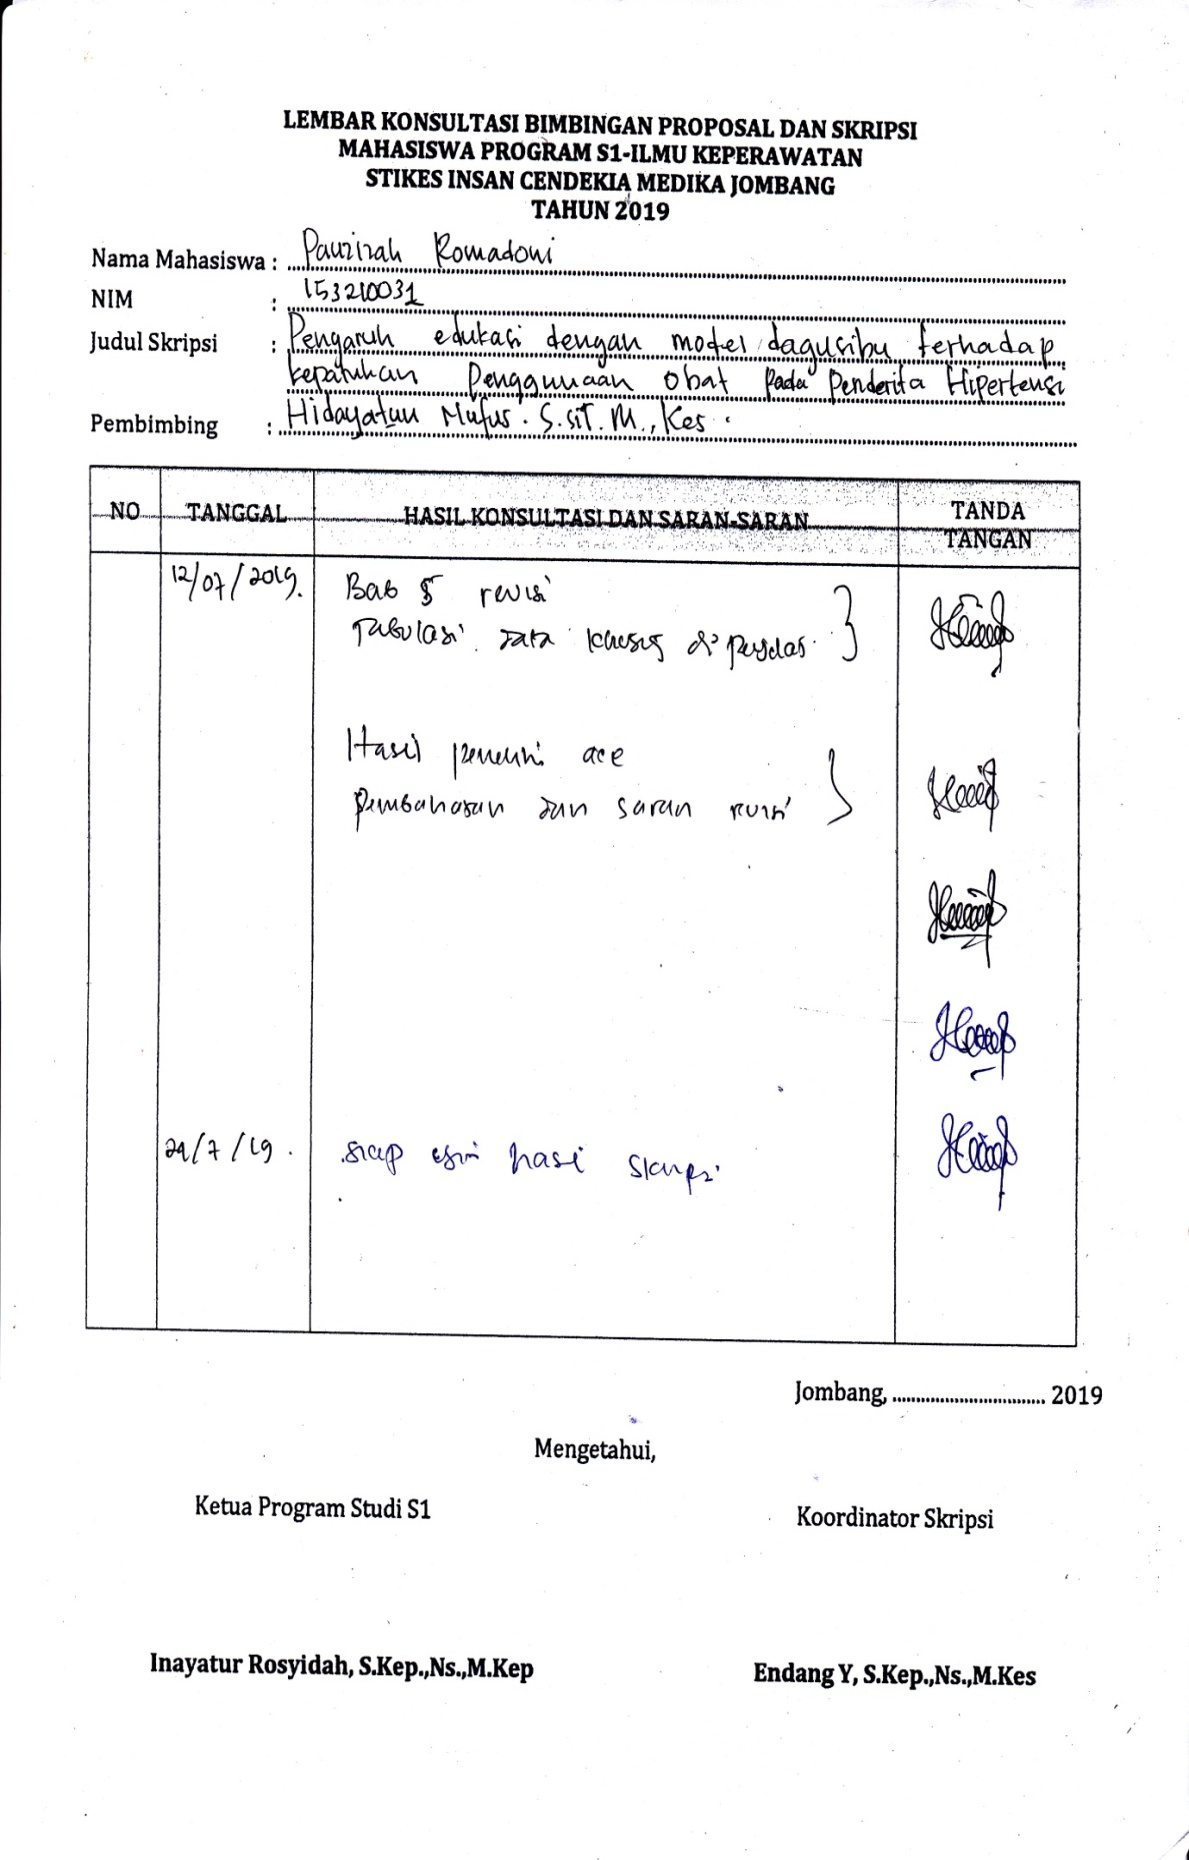 LEMBAR KONSULTASI BIMBINGAN PROPOSAL DAN SKRIPSI
MAHASISWA PROGRAM S1-ILMU KEPERAWATAN
STIKES INSAN CENDEKIA MEDIKA JOMBANG
TAHUN 2019
Nama Mahasiswa : Pauzizah Romadoni
NIM : 153210031
Judul Skripsi : Pengaruh edukasi dengan model dagusibu terhadap
kepatuhan Penggunaan obat pada Penderita Hipertensi
Pembimbing : Hidayatun Nufus. S.SiT. M., Kes.
NO TANGGAL HASIL KONSULTASI DAN SARAN-SARAN TANDA TANGAN
12/07/2019. Bab 5 revisi
Tabulasi data khusus di perjelas.
Hasil acc
pembahasan dan saran revisi
/7/19. siap hasil skripsi
Jombang, .............................. 2019
Mengetahui,
Ketua Program Studi S1 Koordinator Skripsi
Inayatur Rosyidah, S.Kep.,Ns.,M.Kep Endang Y, S.Kep.,Ns.,M.Kes